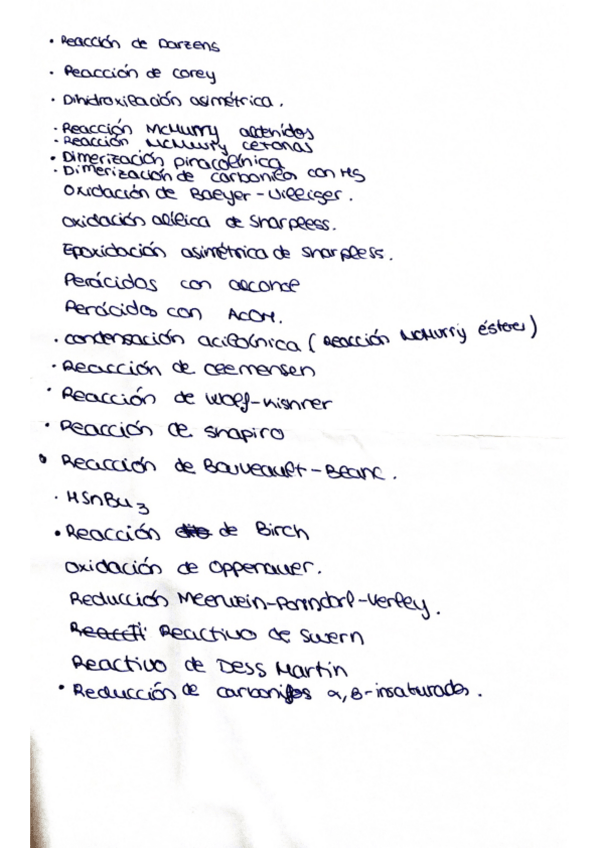 · Reacción de Darzens
· Reacción de Corey
· Dihidroxilación asimétrica.
· Reacción McMurry aldehídos
· Reacción McMurry cetonas
· Dimerización pinacolínica
· Dimerización de carbonilos con
Oxidación de Baeyer-Villiger.
Oxidación alílica de Sharpless.
Epoxidación asimétrica de Sharpless.
Perácidos con alcance
Perácidos con AcOH.
· Condensación aciloínica (Reacción McMurry éster)
· Reacción de Clemensen
· Reacción de Wolf-Kishner
· Reacción de Shapiro
· Reacción de Bouveault-Blanc.
· HSnBu3
· Reacción de Birch
Oxidación de Oppenauer.
Reducción Meerwein-Ponndorf-Verley.
Reactivo de Swern
Reactivo de Dess Martin
· Reducción de carbonilos α,β-insaturados.